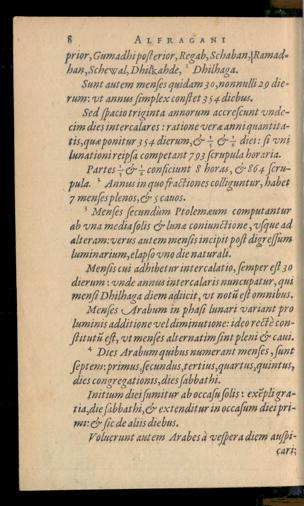 8 ALFRAGANI
prior, Gumadhi posterior, Regab, Schaban, Ramad-
han, Schewal, Dhilkahde, ¹ Dhilhaga.
Sunt autem menses quidam 30, nonnulli 29 die-
rum: vt annus simplex constet 354 diebus.
Sed spacio triginta annorum accrescunt vnde-
cim dies intercalares: ratione veræ anni quantita-
tis, quæ ponitur 354 dierum, & ⅕ & ⅙ diei: si vni
lunationi reipsa competant 793 scrupula horaria.
Partes ⅕ & ⅙ conficiunt 8 horas, & 864 scru-
pula. ² Annus in quo fractiones colliguntur, habet
7 menses plenos, & 5 cauos.
³ Menses secundùm Ptolemæum computantur
ab vna media solis & lunæ coniunctione, vsque ad
alteram: verus autem mensis incipit post digressum
luminarium, elapso vno die naturali.
Mensis cui adhibetur intercalatio, semper est 30
dierum: vnde annus intercalaris nuncupatur, qui
mensi Dhilhaga diem adiicit, vt notū est omnibus.
Menses Arabum in phasi lunari variant pro
luminis additione vel diminutione: ideo rectè con-
stitutū est, vt menses alternatim sint pleni & caui.
⁴ Dies Arabum quibus numerant menses, sunt
septem: primus, secundus, tertius, quartus, quintus,
dies congregationis, dies sabbathi.
Initium diei sumitur ab occasu solis: exēpli gra-
tia, die sabbathi, & extenditur in occasum diei pri-
mi: & sic de aliis diebus.
Voluerunt autem Arabes à vespera diem auspi-
cari: